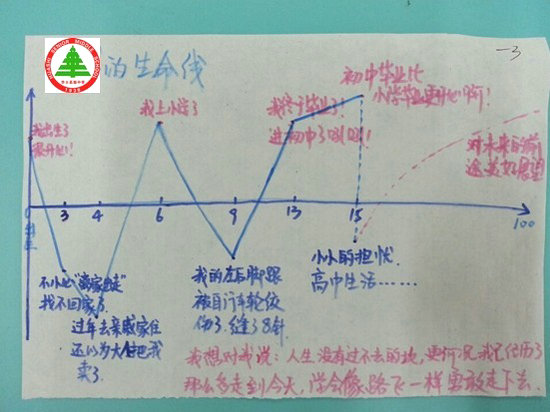 的生命线
一3
我出生了
很开心!
我上小学了
我终于毕业了!
进初中了哎哟!
初中毕业比
小学毕业更开心啊!
对未来的前
途美好展望
3
4
6
9
13
15
100
不小心"离家出走"
找不回家了
过年去亲戚家住
还以为大伯把我
卖了
我的左后脚跟
被自行车轮绞
伤了,缝了8针
小小的担忧
高中生活……
我想对我说:人生没有过不去的坎,更何况我已经历了
那么多走到今天,学会像路飞一样勇敢走下去.